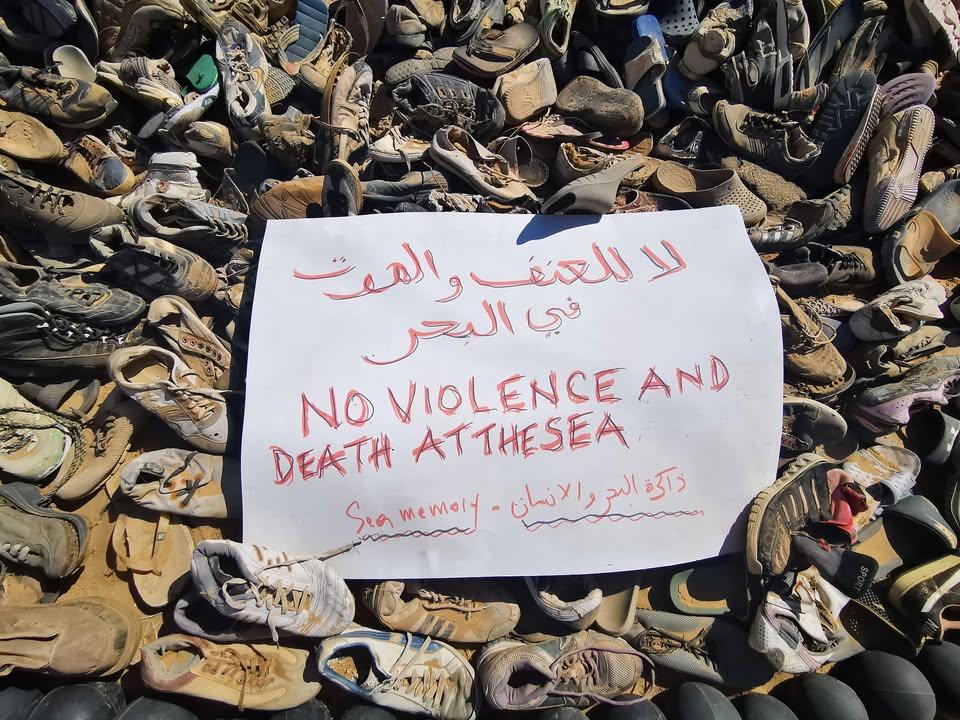 لا للعنف والموت
في البحر
NO VIOLENCE AND
DEATH AT THE SEA
Sea memory - ذاكرة البحر والانسان
SPORT